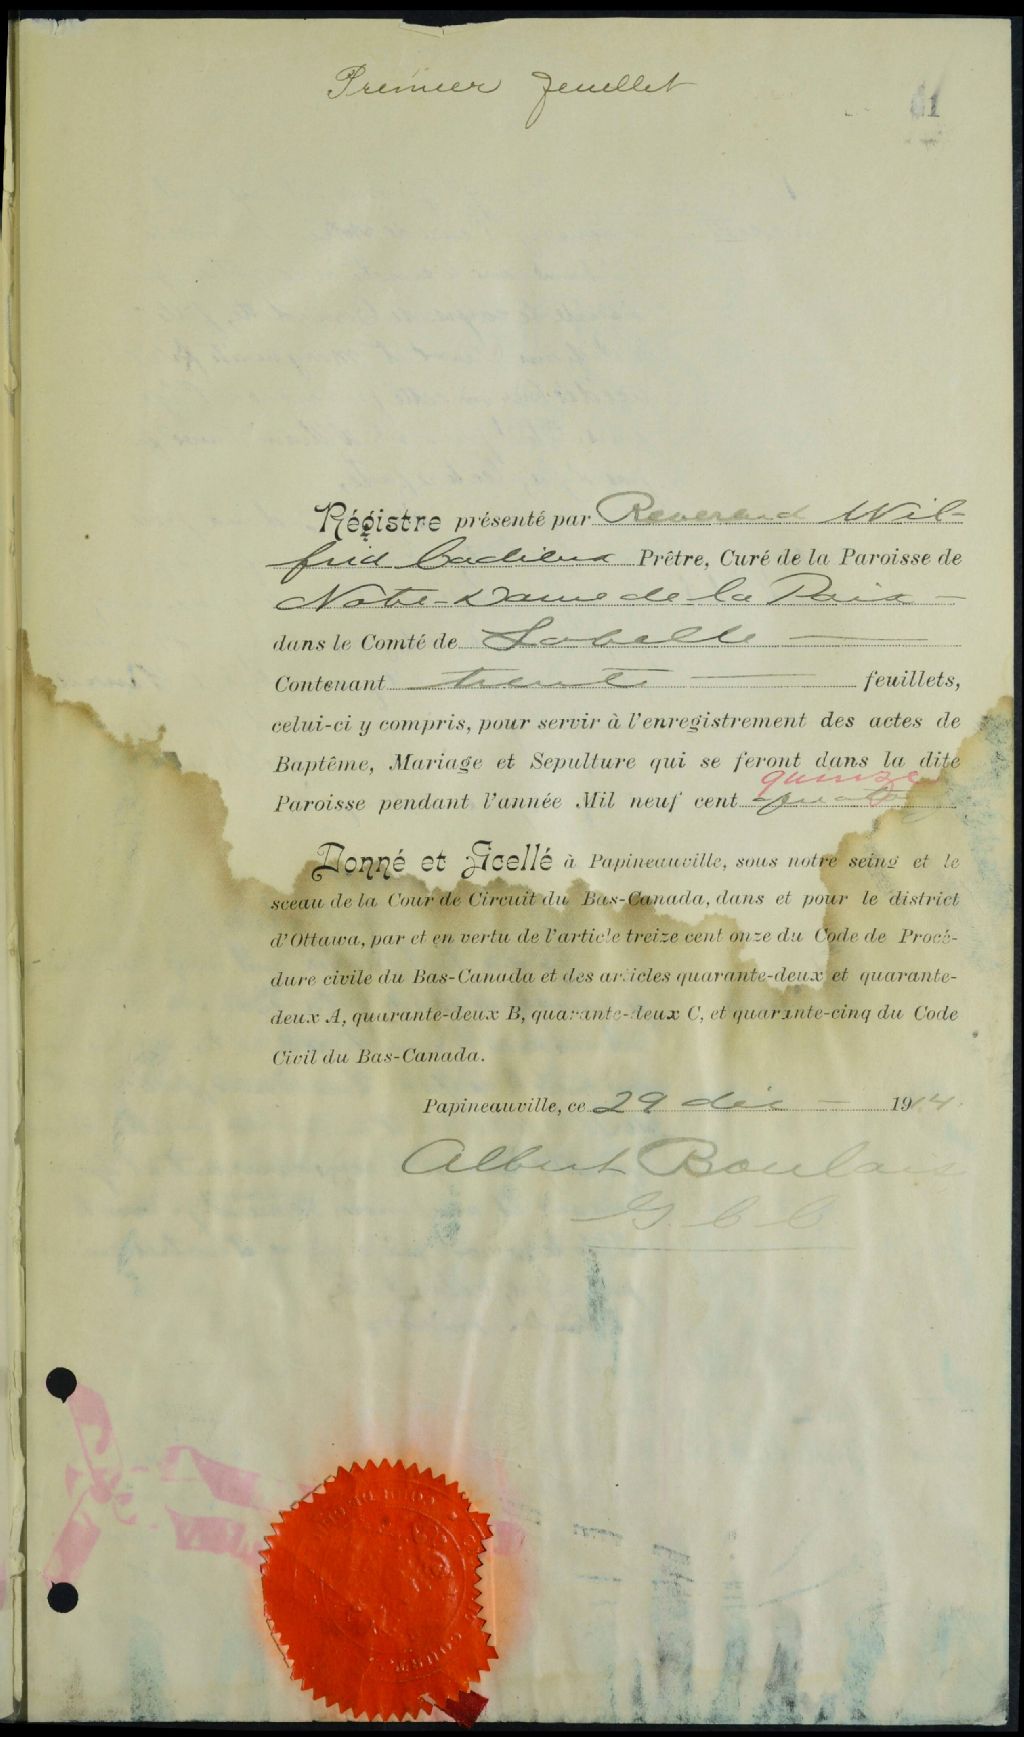 Premier feuillet
61
Régistre présenté par Reverend Wil-
frid Cadieux Prêtre, Curé de la Paroisse de
Notre-Dame de la Paix -
dans le Comté de Labelle
Contenant trente feuillets,
celui-ci y compris, pour servir à l'enregistrement des actes de
Baptême, Mariage et Sepulture qui se feront dans la dite
quinze
Paroisse pendant l'année Mil neuf cent
Donné et Scellé à Papineauville, sous notre seing et le
sceau de la Cour de Circuit du Bas-Canada, dans et pour le district
d'Ottawa, par et en vertu de l'article treize cent onze du Code de Procé-
dure civile du Bas-Canada et des articles quarante-deux et quarante-
deux A, quarante-deux B, quarante-deux C, et quarante-cinq du Code
Civil du Bas-Canada.
Papineauville, ce 29 déc - 1914.
Albert Boulais
G. C. C.